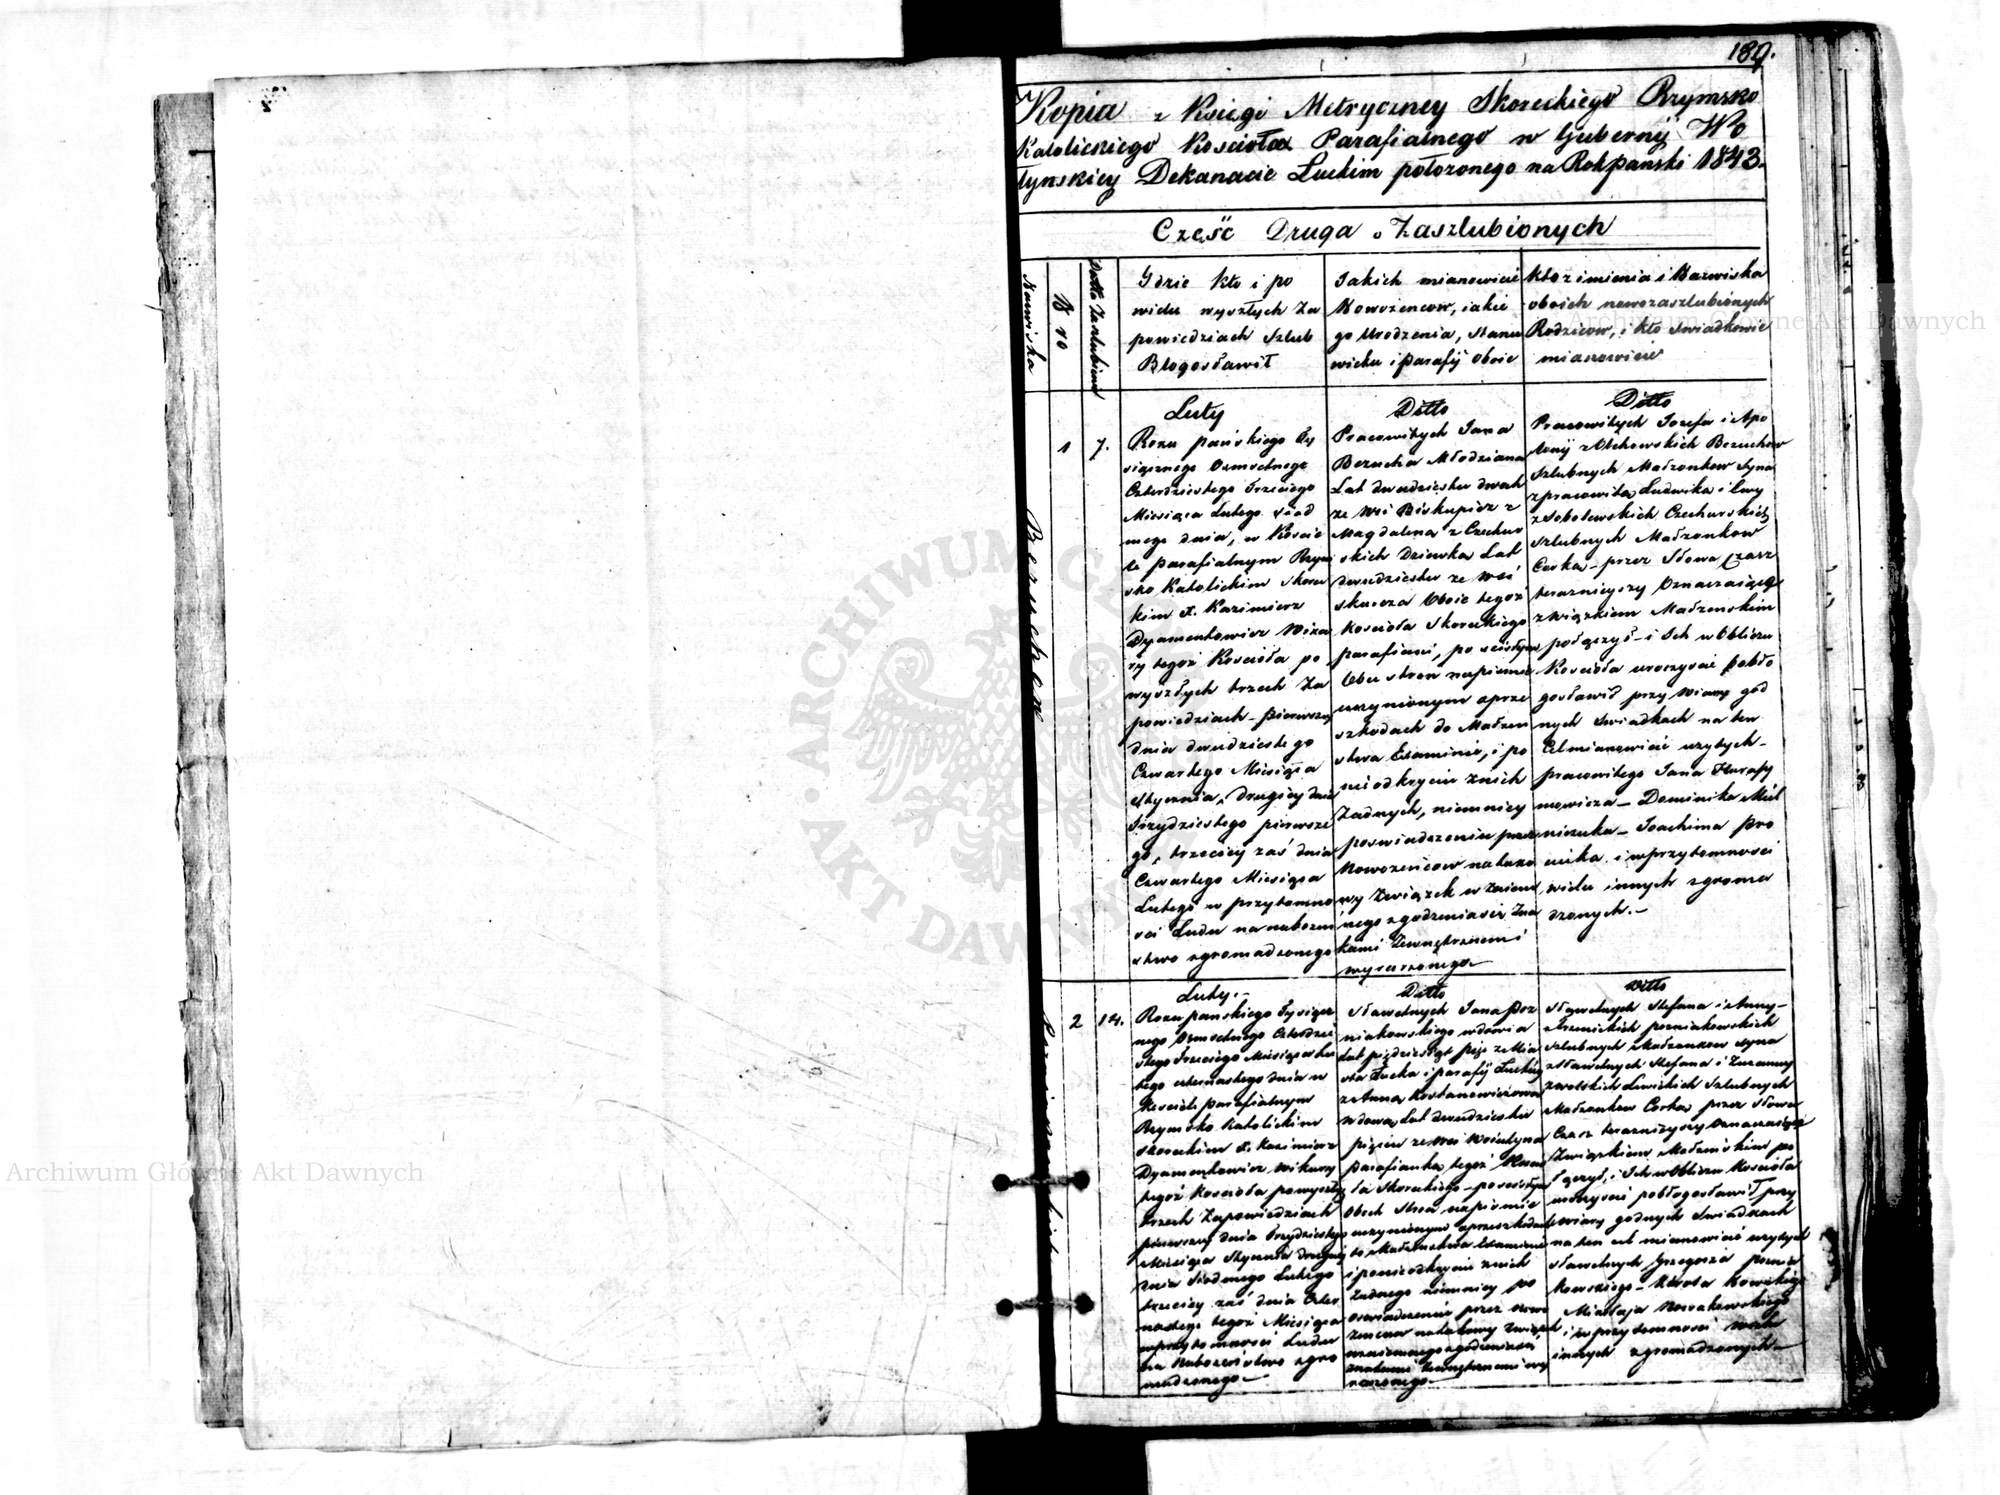 189.
Kopia z Księgi Metryczney Skoreckiego Rzymsko
Katolickiego Kościoła Parafialnego w Gubernij Wo
łynskiey Dekanacie Łuckim położonego na Rok pański 1843.
Część Druga o Zaszlubionych
Nazwiska
Nro
Data Zaslubien
Gdzie kto i po
wielu wyszłych Za
powiedziach Szlub
Błogosławił
Jakich mianowicie
Nowożencow, iakie
go Urodzenia, Stanu
wieku i parafij oboie
Kto z imienia i Nazwiska
oboich nowozaszlubionych
Rodzicow, i kto Swiadkowie
mianowicie
Bezuchow
1
7.
Luty
Roku pańskiego ty
siącznego Osmsetnego
Czterdziestego trzeciego
Miesiąca Lutego siod
mego dnia, w Koscie
le parafialnym Rzym
sko Katolickim Skorec
kim X. Kazimierz
Dyamentowicz Wika
ry tegoż Kościoła po
wyszłych trzech Za
powiedziach – pierwszey
dnia dwudziestego
Czwartego Miesiąca
Stycznia, drugiey dnia
trzydziestego pierwsze
go, trzeciey zaś dnia
Czwartego Miesiąca
Lutego w przytomno
sci Ludu na nabożen
stwo zgromadzonego
Ditto
Pracowitych Jana
Bezucha Młodziana
Lat dwudziestu dwóch
ze wsi Biskupicz z
Magdalena z Czechur
skich Dziewka Lat
dwudziestu ze wsi
Skurcza Oboie tegoż
Kościoła Skoreckiego
parafiani, po scisłym
Obu stron napismie
uczynionym oprze
szkodach do Małżen
stwa Examinie, i po
nieodkryciu znich
Żadnych, niemniey
poswiadczeniu przez
Nowożeńcow na tako
wy Związek wzaiem
nego zgodzenia się Zna
kami Zewnętrznemi
wyrażonego
Ditto
Pracowitych Jozefa i Apo
lonij z Olchowskich Bezuchow
Szlubnych Małżonkow Syna
z pracowitą Ludwika i Ewy
z Sobolewskich Czechurskich
Szlubnych Małżonkow
Corka – przez Słowa Czasz
teraznieyszy Oznaczaiące
związkiem Małżenskim
połączył – i Ich w Obliczu
Kościoła uroczyscie pobło
gosławił przy wiary god
nych Swiadkach na ten
Cel mianowicie użytych –
pracowitego Jana Harasy
mowicza – Dominika Miel
niczuka – Joachima Pro
cika i wprzytomnosci
wielu innych zgroma
dzonych. –
2
14.
Luty. –
Roku pańskiego Tysiącz
nego Osmsetnego Czterdzie
stego trzeciego Miesiąca Lu
tego czternastego dnia w
Kosciele parafialnym
Rzymsko Katolickim
Skoreckim X. Kazimierz
Dyamentowicz Wikary
tegoż Kościoła powyszłych
trzech Zapowiedziach
pierwszey dnia trzydziestego
Miesiąca Stycznia drugiey
dnia Siodmego Lutego
trzeciey zaś dnia Czter
nastego tegoż Miesiąca
wprzytomności Ludu
na Nabożenstwo zgro
madzonego –
Ditto
Sławetnych Jana Poz
niakowskiego wdowca
Lat pięćdziesiąt pięć z Mia
sta Łucka i parafij Łuckiey
z Anna Kostanowiczowa
Wdową Lat dwudziestu
pięciu ze Wsi Woiutyna
parafianką tegoż Koscio
ła Skoreckiego – po scisłym
Obech Stron napismie
uczynionym oprzeszkodach
do Małżenstwa Examinie
i ponieodkryciu znich
Żadnego niemniey po
oswiadczeniu przez nowo
żencow natakowy Związek
wzaiemnego zgodzenia się
Znakami Zewnętrznemi wy
rażonego –
Ditto
Sławetnych Stefana i Anny –
pozniakowskich
Szlubnych Małżonkow Syna
z Sławetnych Stefana i Zuzanny
Szlubnych
Małżonkow Corką przez Słowa
Czasz teraznieyszy Oznaczaiące
Związkiem Małżenskim po
łączył, i Ich w Obliczu Kosciola
uroczyscie pobłogosławił przy
wiary godnych Swiadkach
na ten cel mianowicie użytych
Sławetnych Grzegorza poznia
kowskiego – Karola Kowalskiego
Nowakowskiego
i wprzytomnosci wielu
innych zgromadzonych –
ARCHIWUM GŁÓWNE AKT DAWNYCH
Archiwum Główne Akt Dawnych
Archiwum Główne Akt Dawnych